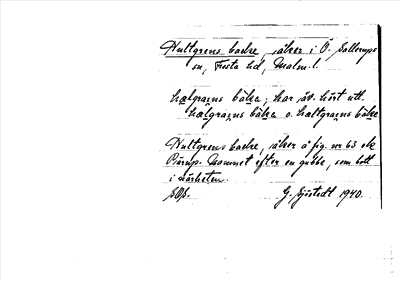 Hultgrens backe, åker i Ö. Sallerups
sn, Frosta hd, Malm. l.
hælgraɳs bàkə; har äv. hört utt.
hælgraɳs bàkə o. hæltgraɳs bàkə
Hultgrens backe, åker å fig. nr 63 etc
Pärup. Namnet efter en gubbe, som bott
i närheten.
G. Sjöstedt 1940.